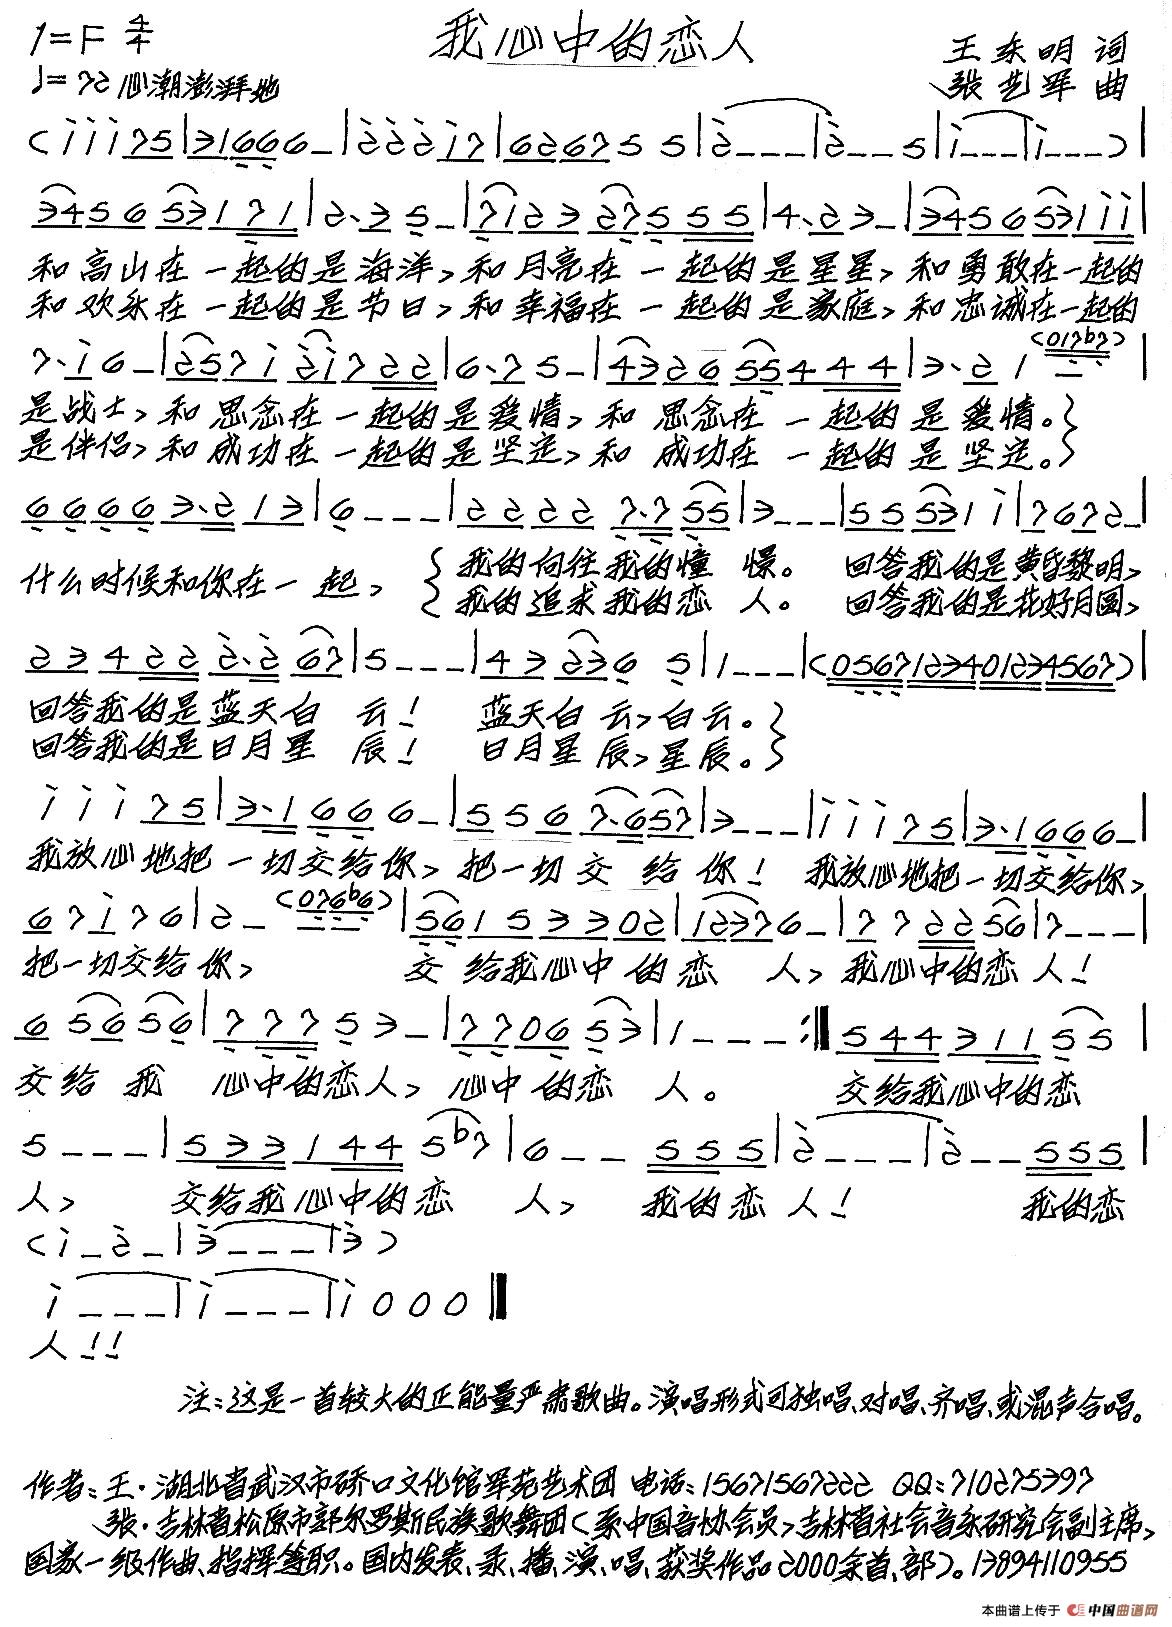 我心中的恋人
1=F 4/4
王东明 词
♩=72 心潮澎湃地
张艺军 曲
(i i i 7 5 | 3 1 6 6 6 – | 2 2 2 i 7 | 6 2 6 7 5 5 | 2 – – – | 2 – – 5 | i – – – | i – – – ) |
3 4 5 6 5 3 1 7 1 | 2 · 3 5 – | 7 1 2 3 2 7 5 5 5 | 4 · 2 3 – | 3 4 5 6 5 3 1 i i |
和高山在一起的是海洋,和月亮在一起的是星星,和勇敢在一起的
和欢乐在一起的是节日,和幸福在一起的是家庭,和忠诚在一起的
7 · i 6 – | 2 5 7 i 2 i 7 2 2 | 6 · 7 5 – | 4 3 2 6 5 5 4 4 4 | 3 · 2 1 (0 1 7 b7) |
是战士,和思念在一起的是爱情,和思念在一起的是爱情。
是伴侣,和成功在一起的是坚定,和成功在一起的是坚定。
6 6 6 6 3 · 2 1 3 | 6 – – – | 2 2 2 2 7 · 7 5 5 | 3 – – – | 5 5 5 3 1 i | 7 6 7 2 – |
什么时候和你在一起, 我的向往我的憧憬。 回答我的是黄昏黎明,
我的追求我的恋人。 回答我的是花好月圆,
2 3 4 2 2 2 · 2 6 7 | 5 – – – | 4 3 2 3 6 5 | 1 – – – | (0 5 6 7 1 2 3 4 0 1 2 3 4 5 6 7) |
回答我的是蓝天白云! 蓝天白云,白云。
回答我的是日月星辰! 日月星辰,星辰。
i i i 7 5 | 3 · 1 6 6 6 – | 5 5 6 7 · 6 5 7 | 3 – – – | i i i 7 5 | 3 · 1 6 6 6 – |
我放心地把一切交给你,把一切交给你! 我放心地把一切交给你,
6 7 i 7 6 | 2 – (0 7 6 b6) | 5 6 1 5 3 3 0 2 | 1 2 3 7 6 – | 7 7 2 2 5 6 | 7 – – – |
把一切交给你, 交给我心中的恋人,我心中的恋人!
6 5 6 5 6 | 7 7 7 5 3 – | 7 7 0 6 5 3 | 1 – – – :‖ 5 4 4 3 1 1 5 5 |
交给我心中的恋人,心中的恋人。 交给我心中的恋
5 – – – | 5 3 3 1 4 4 5 b7 | 6 – – 5 5 5 | 2 – – – | 2 – – 5 5 5 |
人, 交给我心中的恋人, 我的恋人! 我的恋
(i – 2 – | 3 – – – | 3)
i – – – | i – – – | i 0 0 0 ‖
人!!
注:这是一首较大的正能量严肃歌曲。演唱形式可独唱、对唱、齐唱、或混声合唱。
作者:王·湖北省武汉市硚口文化馆军苑艺术团 电话:15671567222 QQ:710275397
张·吉林省松原市郭尔罗斯民族歌舞团(系中国音协会员,吉林省社会音乐研究会副主席,
国家一级作曲、指挥等职。国内发表、录、播、演、唱、获奖作品2000余首、部)。13894110955
本曲谱上传于 中国曲谱网